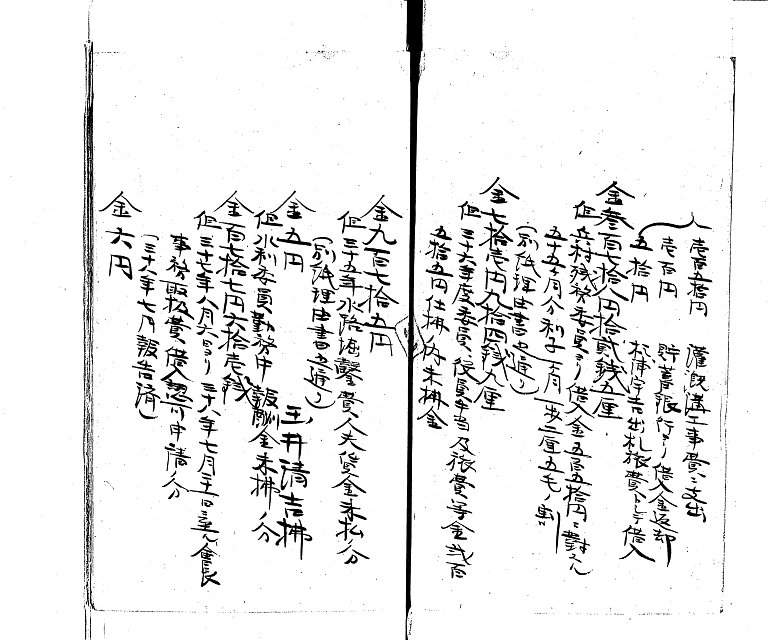 壱百五拾円 灌漑溝工事費ニ支出
壱百円 貯蓄銀行ヨリ借入金返却
五拾円 松浦宇吉出札旅費トシテ借入
金叁百七拾八円拾貳銭五厘
但立村残務委員ヨリ借入金五百五拾円ニ對スル
五十五ヶ月分利子一ヶ月一歩二厘五毛ノ割
(別紙理由書之通リ)
金七拾壱円八拾四銭九厘
但三十六年度委員、役員手当及旅費等金弐百
五拾五円仕拂内未拂金
金九百七拾五円
但三十五年水路掘鑿費人夫賃金未払ノ分
(別紙理由書之通リ)
金五円 玉井清吉拂
但水利委員勤務中報酬金未拂ノ分
金百七拾七円六拾壱銭
但三十七年八月六日ヨリ三十八年七月三十一日ニ至ル會長
事務取扱費借入認可申請ノ分
(三十八年七月報告済)
金六円